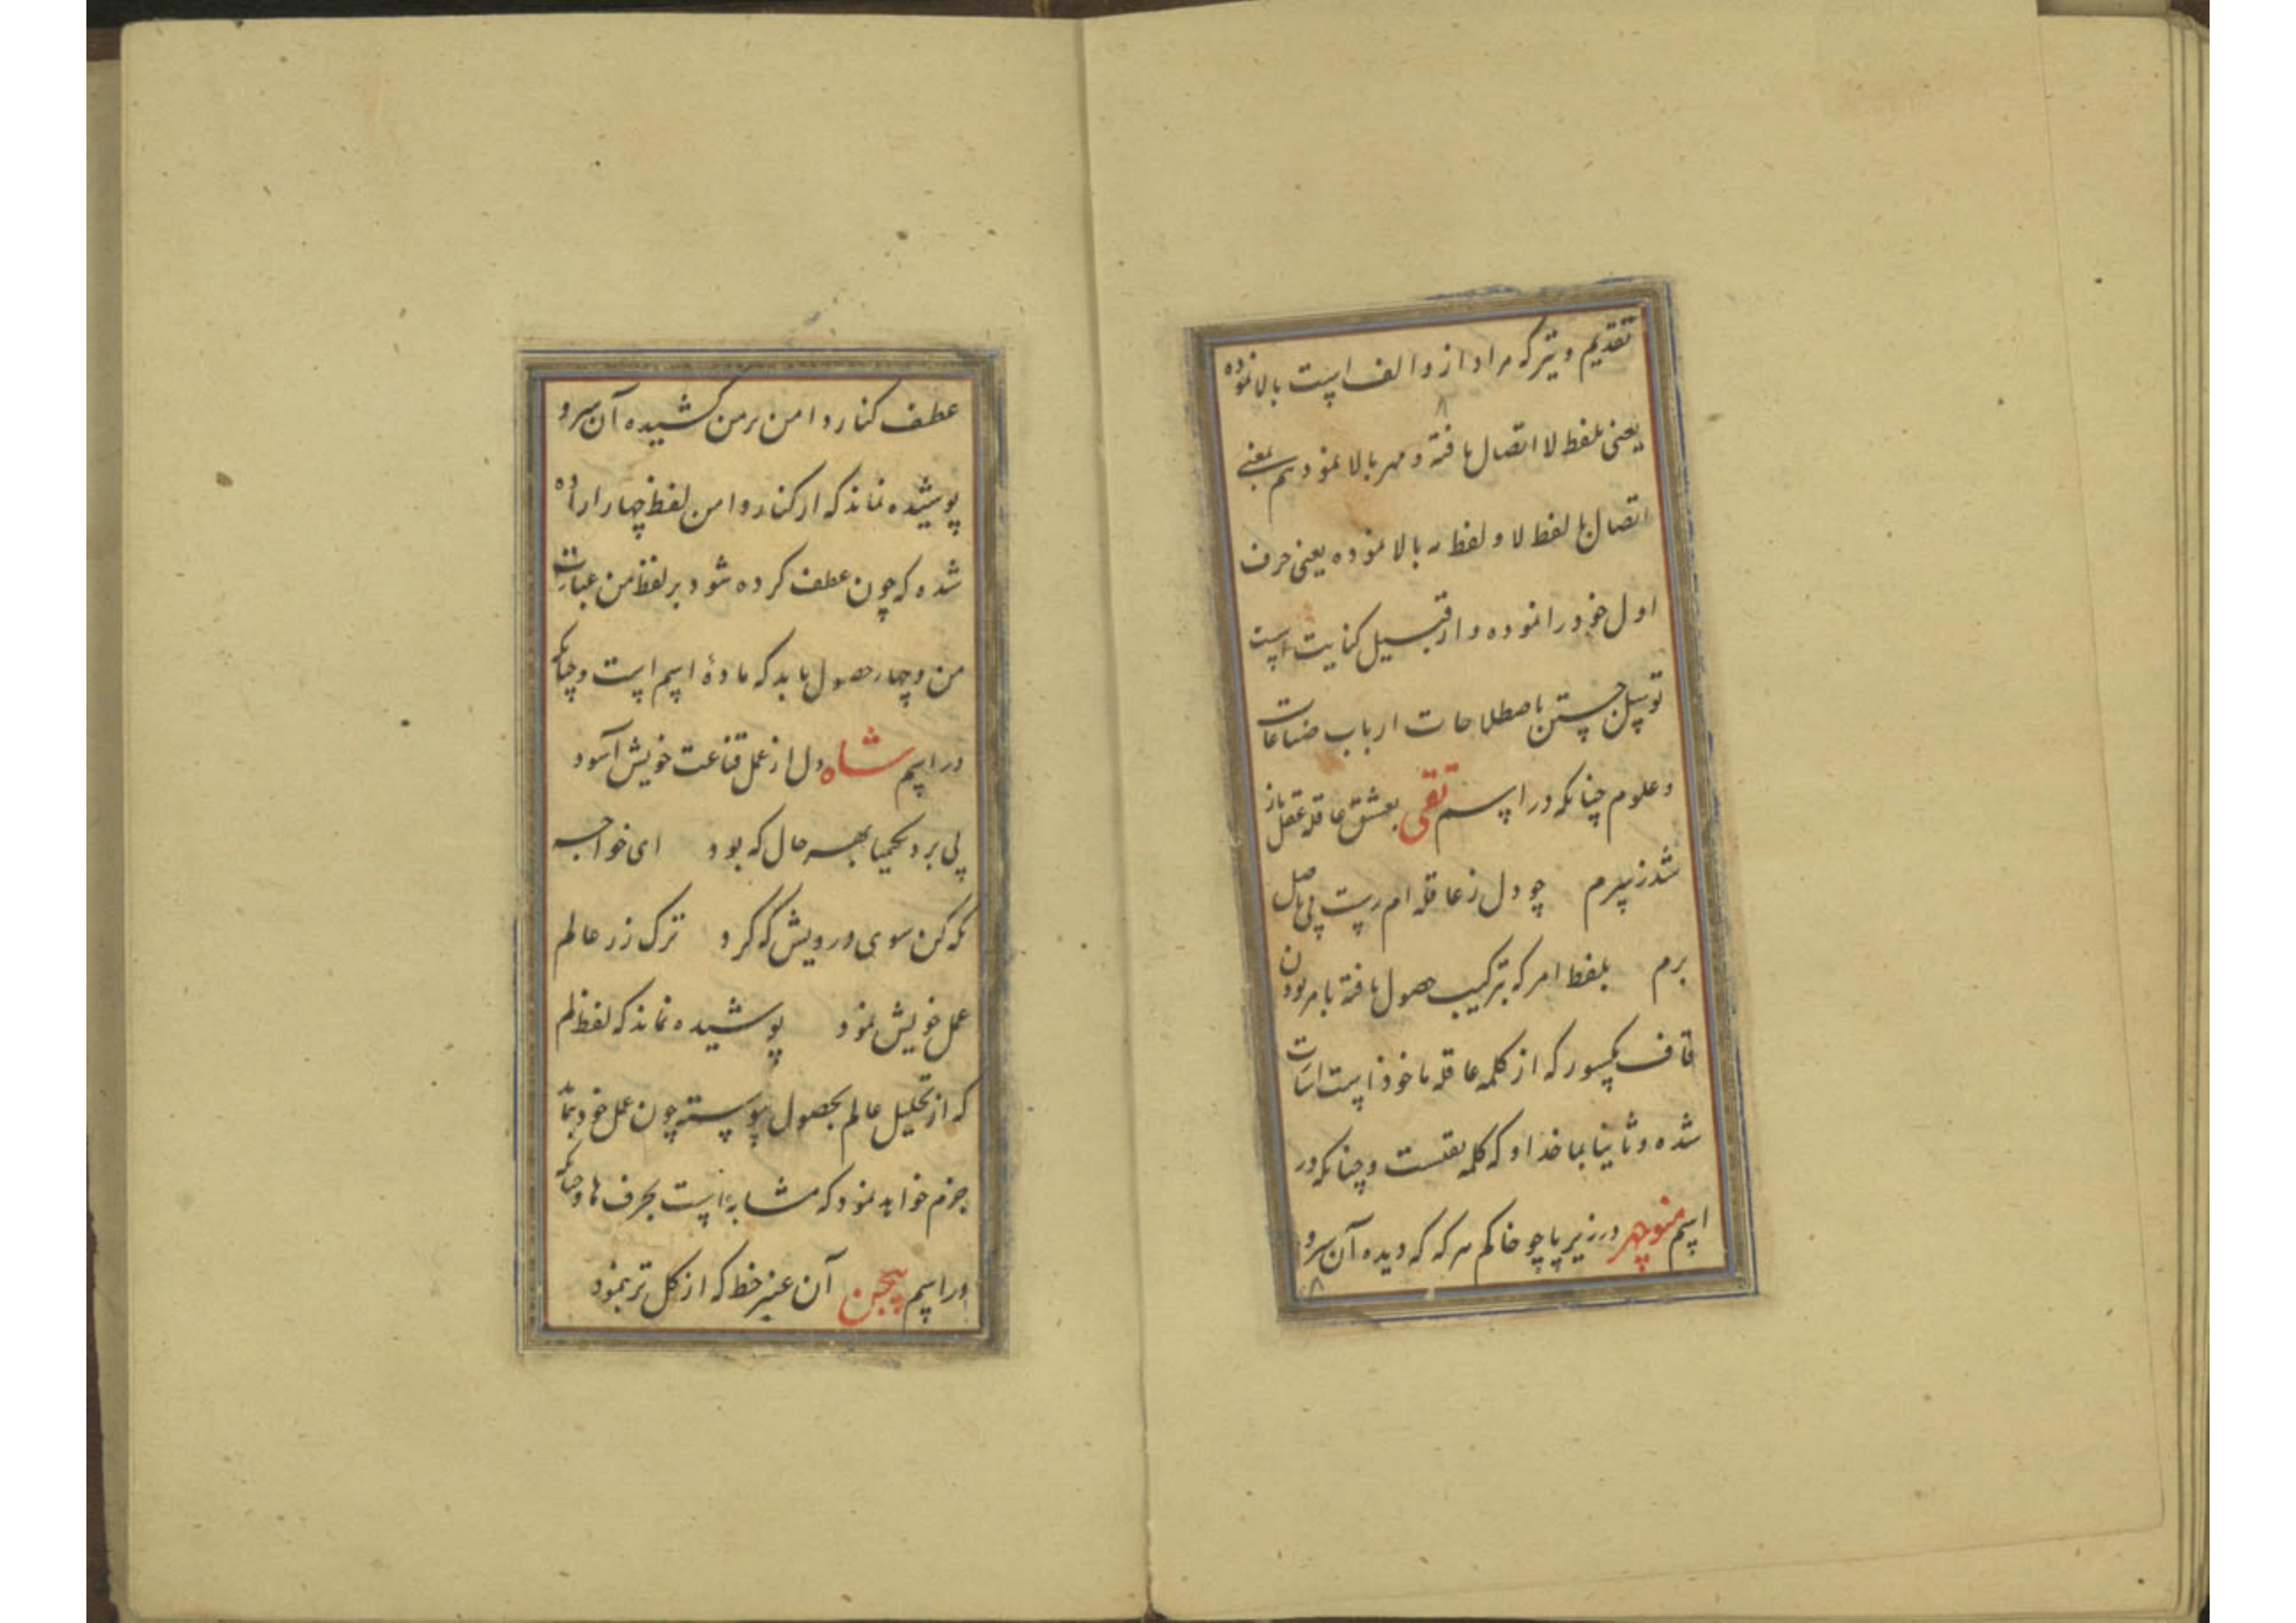 تقدیم و تیر که مراد از و الف است بالا نموده
یعنی بلفظ لا اتصال یافته و مهر بالا نمود هم بمعنی
اتصال ها بلفظ لا و لفظ ر بالا نموده یعنی حرف
اول خود را نموده و از قبیل کنایت است
توسل جستن باصطلاحات ارباب صناعات
و علوم چنانکه در اسم تقی بعشق عاقله عقل باز
شد ز سرم چو دل ز عاقله ام رست پی باصل
برم بلفظ امر که بترکیب حصول یافته بامر بودن
قاف مکسور که از کلمه عاقله ماخوذ است اشارت
شده و ثانیا بماخذ او که کلمه تقست و چنانکه در
اسم منوچهر در زیر پا چو خاکم هر که که دیده آن سرو
عطف کنار و دامن بر من کشیده آن سرو
پوشیده نماند که از کنار و دامن لفظ چهار اراده
شده که چون عطف کرده شود بر لفظ من عبارت
من و چهار حصول یابد که مادهٔ اسم است و چنانکه
در اسم شاه دل از عمل قناعت خویش آسود
پی برد بکیمیا بهر حال که بود ای خواجه
نکه کن سوی درویش که کرد ترک زر عالم
عمل خویش نمود پوشیده نماند که لفظ لم
که از تحلیل عالم بحصول پیوسته چون عمل خود بنماید
جزم خواهد نمود که مشابه است بحرف ها و چنانکه
در اسم بیجن آن عنبر خط که از کل تر بنمود